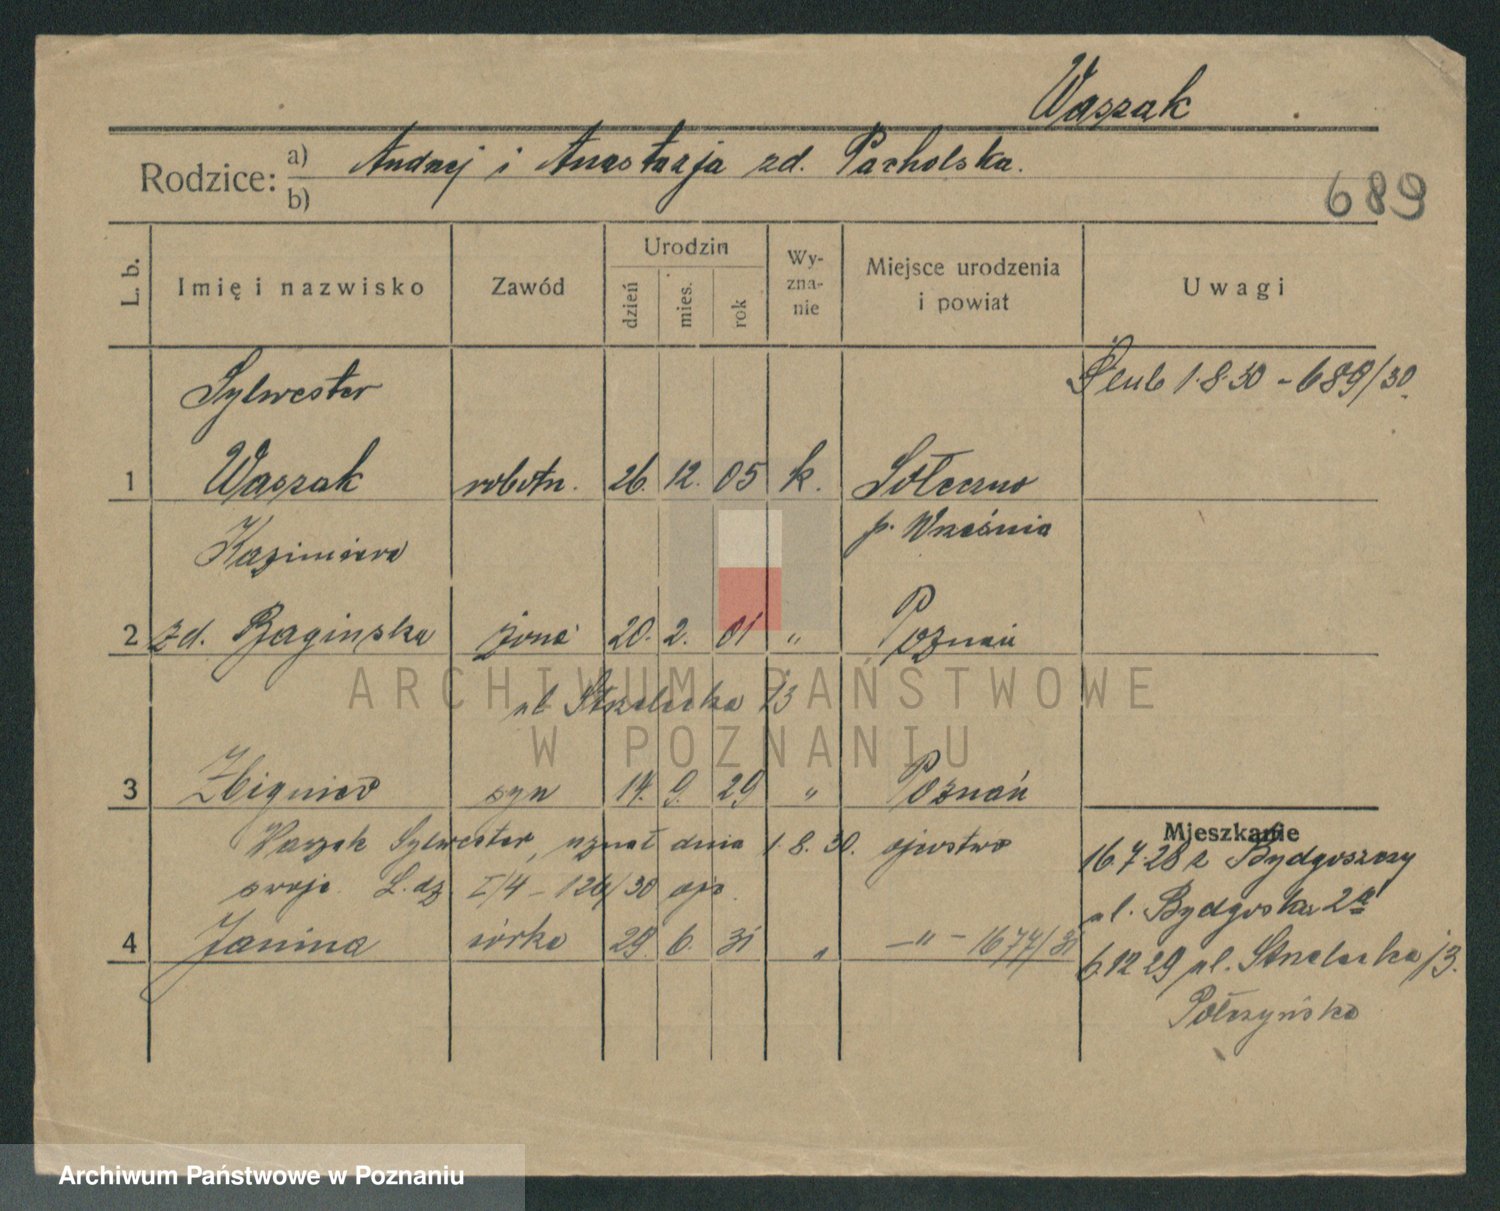 Waszak
Rodzice: a) Andrzej i Anastazja zd. Pacholska.
b)
689
L. b. Imię i nazwisko Zawód Urodzin dzień mies. rok Wy-zna-nie Miejsce urodzenia i powiat Uwagi
Sylwester
Ślub 1.8.30 - 689/30.
1 Waszak robotn. 26. 12. 05 k. Sołeczno
Kazimiera p. Września
2 zd. Bagińska żona 20. 2. 01 " Poznań
ul Strzelecka 13
3 Zbigniew syn 14. 9. 29 " Poznań
Waszak Sylwester, uznał dnia 1.8.30. ojcostwo
swoje. L.dz I/4 - 126/30
4 Janina córka 29. 6. 31 " —"— 1677/31
Mieszkanie
16.7.28 z Bydgoszczy
ul. Bydgoska 2a
6.12.29 ul. Strzelecka 13.
ARCHIWUM PAŃSTWOWE
W POZNANIU
Archiwum Państwowe w Poznaniu